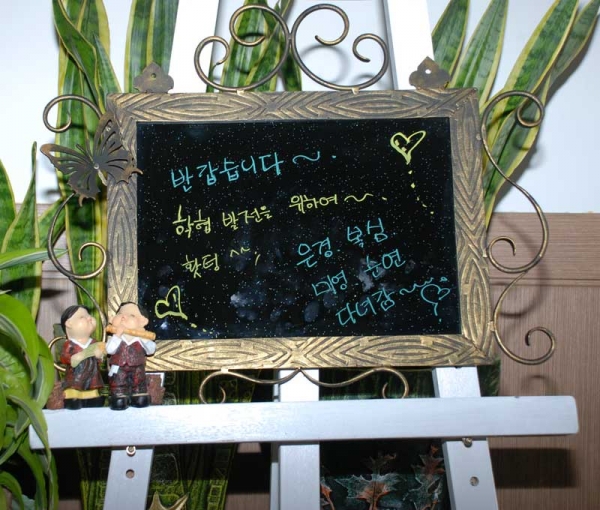 반갑습니다~.
학협 발전을 위하여~.
홧팅 ^^;
은경 복심
미영 순연
다녀감~